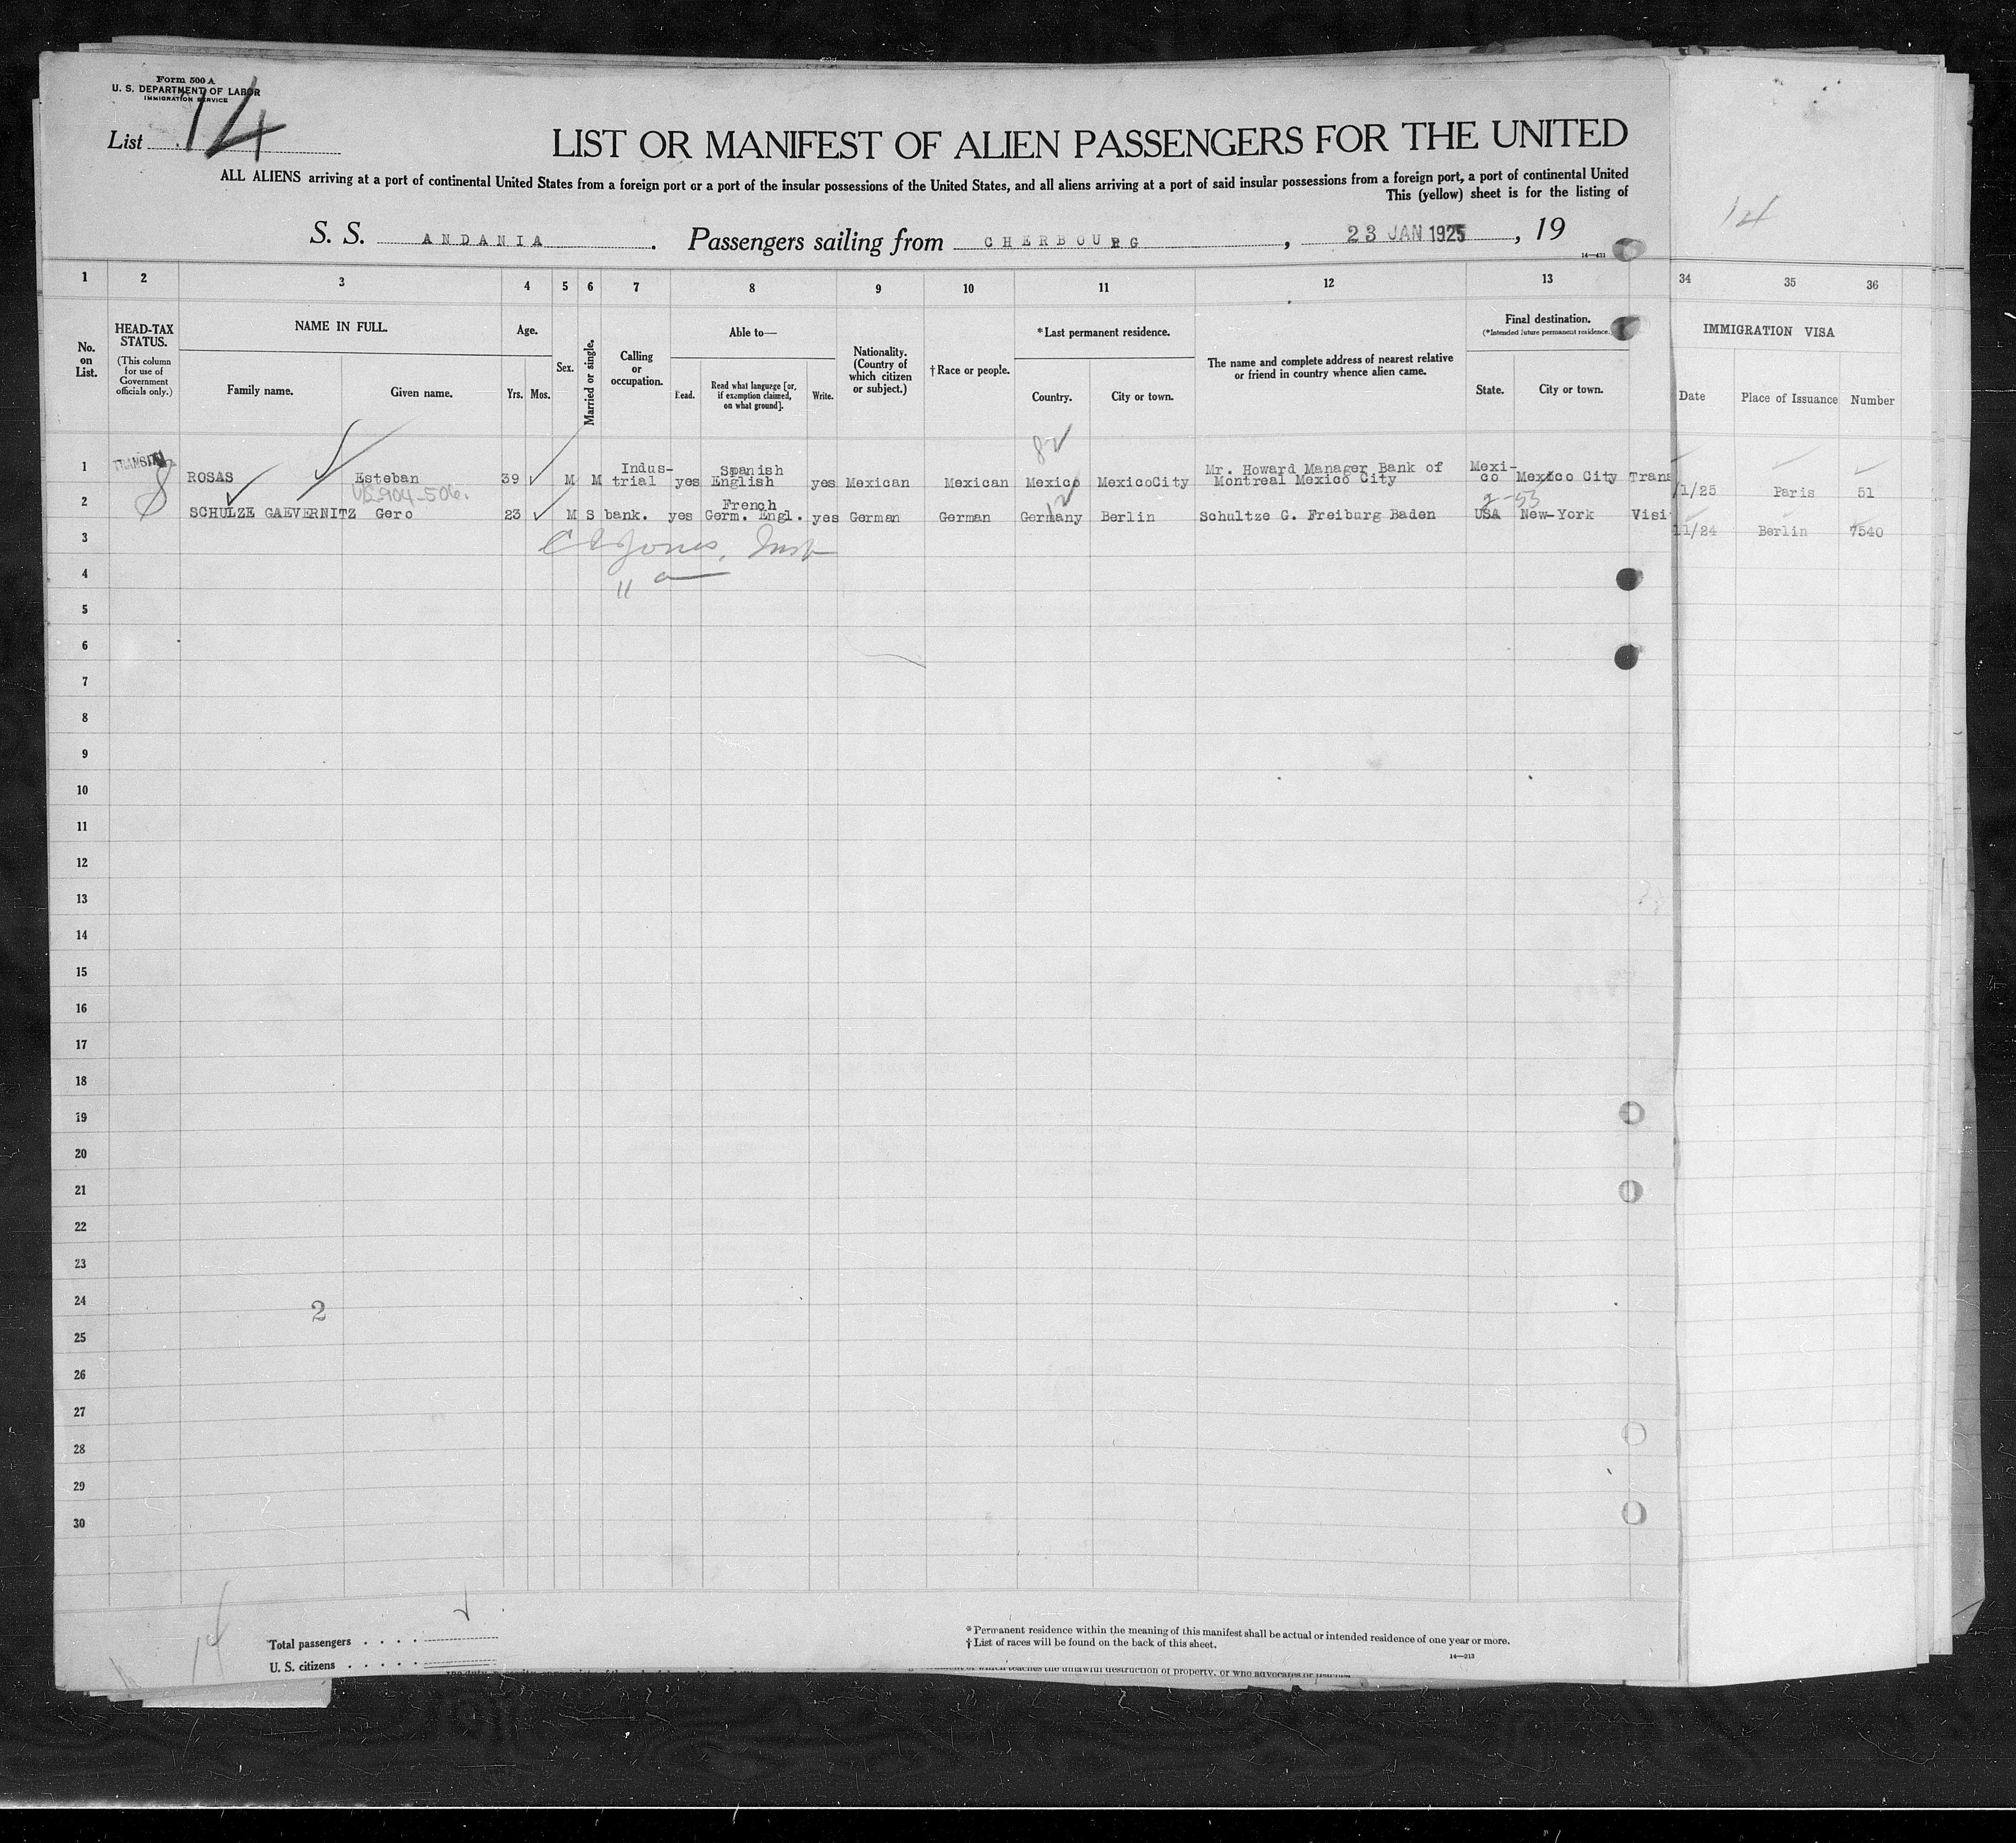 Form 500 A
U. S. DEPARTMENT OF LABOR
IMMIGRATION SERVICE
List 14
LIST OR MANIFEST OF ALIEN PASSENGERS FOR THE UNITED
ALL ALIENS arriving at a port of continental United States from a foreign port or a port of the insular possessions of the United States, and all aliens arriving at a port of said insular possessions from a foreign port, a port of continental United
This (yellow) sheet is for the listing of
14
S. S. ANDANIA . Passengers sailing from CHERBOURG , 23 JAN 1925 , 19
14—431
1 2 3 4 5 6 7 8 9 10 11 12 13 34 35 36
No. on List.
HEAD-TAX STATUS.
(This column for use of Government officials only.)
NAME IN FULL.
Family name. Given name.
Age.
Yrs. Mos.
Sex.
Married or single.
Calling or occupation.
Able to—
Read. Read what language [or, if exemption claimed, on what ground]. Write.
Nationality. (Country of which citizen or subject.)
† Race or people.
*Last permanent residence.
Country. City or town.
The name and complete address of nearest relative or friend in country whence alien came.
Final destination.
(*Intended future permanent residence.)
State. City or town.
IMMIGRATION VISA
Date Place of Issuance Number
82
1 TRANSIT ROSAS Esteban 39 M M Indus-trial yes Spanish English yes Mexican Mexican Mexico MexicoCity Mr. Howard Manager Bank of Montreal Mexico City Mexi-co Mexico City Trans /1/25 Paris 51
12
2-53
2 SCHULZE GAEVERNITZ Gero 23 M S bank. yes French Germ. Engl. yes German German Germany Berlin Schultze G. Freiburg Baden USA New-York Visi 11/24 Berlin 7540
3
Jones, Insp
4
5
6
7
8
9
10
11
12
13
14
15
16
17
18
19
20
21
22
23
24
2
25
26
27
28
29
30
14
Total passengers . . . .
U. S. citizens . . . . .
* Permanent residence within the meaning of this manifest shall be actual or intended residence of one year or more.
† List of races will be found on the back of this sheet.
14—213
which teaches the unlawful destruction of property, or who advocates or